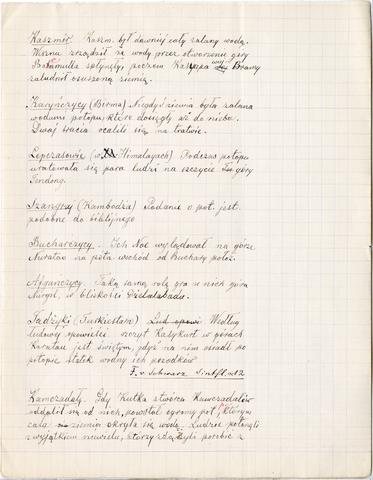 Kaszmir. Kaszm. był dawniej cały zalany wodą.
Wisznu zrządził że wody przez otworzenie góry
Baramulta spłynęły, poczem Kasyapa wnuk Bramy
zaludnił osuszoną ziemię.
Karyńczycy (Birma) Niegdyś ziemia była zalana
wodami potopu, które dosięgły aż do nieba.
Dwaj bracia ocalili się na tratwie.
Lepczasowie (w Himalayach) Podczas potopu
uratowała się para ludzi na szczycie góry
Tendong.
Szangraj (Kambodża) Podanie o pot. jest
podobne do biblijnego
Bucharczycy. Ich Noe wylądował na górze
Nuratau na półn. wschód od Buchary położ.
Afgańczycy. Taką samą rolę gra u nich góra
Nurgil, w bliskości Dżelalabadu.
Tadżyki (Turkiestan) Według
ludowej powieści szczyt Kasykurt w górach
Karatau jest świętym, gdyż na nim osiadł po
potopie statek wodny ich przodków
F. v. Schwarz Sintfl. str 2
Kamczadały. Gdy Kutka stwórca Kamczadalów
oddalił się od nich, powstał ogromny pot., którym
cała ziemia okryta się wodą. Ludzie potonęli
z wyjątkiem niewielu, którzy zdążyli porobić z